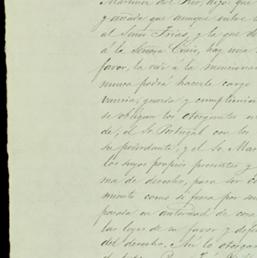 Martinez del Rio, dijo: que
y añade que aunque entre
al Señor Frias, y la que
á la Señora Ciria, hay una
favor, la ride á la menciona
nunca podrá hacerle cargo
rancia; guarda y cumplimien
se obligan los otorgantes
de, el Sr. Portugal con los
su poderdante; y el Sr. Mar
los suyos propios presentes y
ma de derecho, para ser com
miento como si fuera por sen
pasada en autoridad de cosa
las leyes de su favor y defen
del derecho. Así lo otorgar